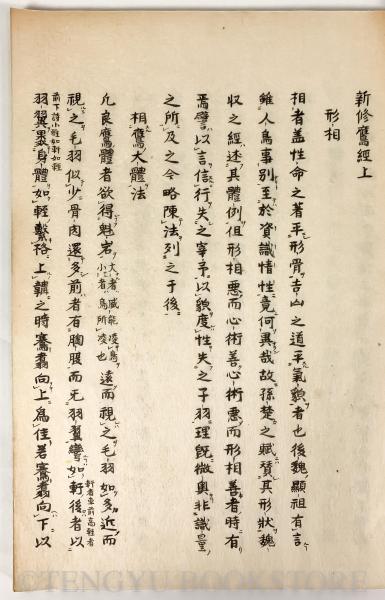 新修鷹經上
形相
相者盖性命之著乎形骨吉凶之道乎氣貌者也後魏顯祖有言
雖人鳥事別至於資識情性竟何異哉故孫楚之賦賛其形狀魏
収之經述其體例但形相悪而心術善心術悪而形相善者時有
焉譬以言信行失之宰予以貌度性失之子羽理既微奥非識量
之所及之今略陳法列之于後
相鷹大體法
凡良鷹體者欲得魁岩大者威能凌鳥小者鳥所凌也遠而視之毛羽如多近而
視之毛羽似少骨肉還多前者有胸股而无羽翼轡如軒後者以軒者車前高軽者
前下詩小雅如軒如軽羽翼裹身體如軽繋格上韝之時騫翥向上為佳若騫翥向下以
©TENGYU BOOKSTORE